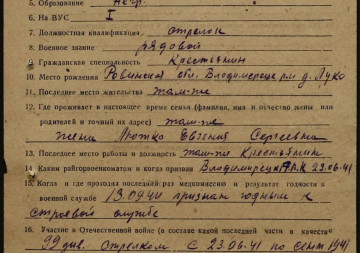 5. Образование негр.
6. На ВУС I
7. Должностная квалификация, стрелок
8. Военное звание рядовой
9. Гражданская специальность Крестьянин
10. Место рождения Ровенская обл. Владимерецк р-н д.
11. Последнее место жительства там-же
12. Где проживает в настоящее время семья (фамилия, имя и отчество жены или
родителей и точный их адрес) там-же
жена Евгения Сергеевна
13. Последнее место работы и должность там-же Крестьянин
14. Каким райгорвоенкоматом и когда призван 23.06.41
15. Когда и где проходил последний раз медкомиссию и результат годности к
военной службе 13.0944 признан годным к
строевой службе
16. Участие в Отечественной войне (в составе какой последней части и в качестве
99 див. Стрелком с 23.06.41 по сент 1941